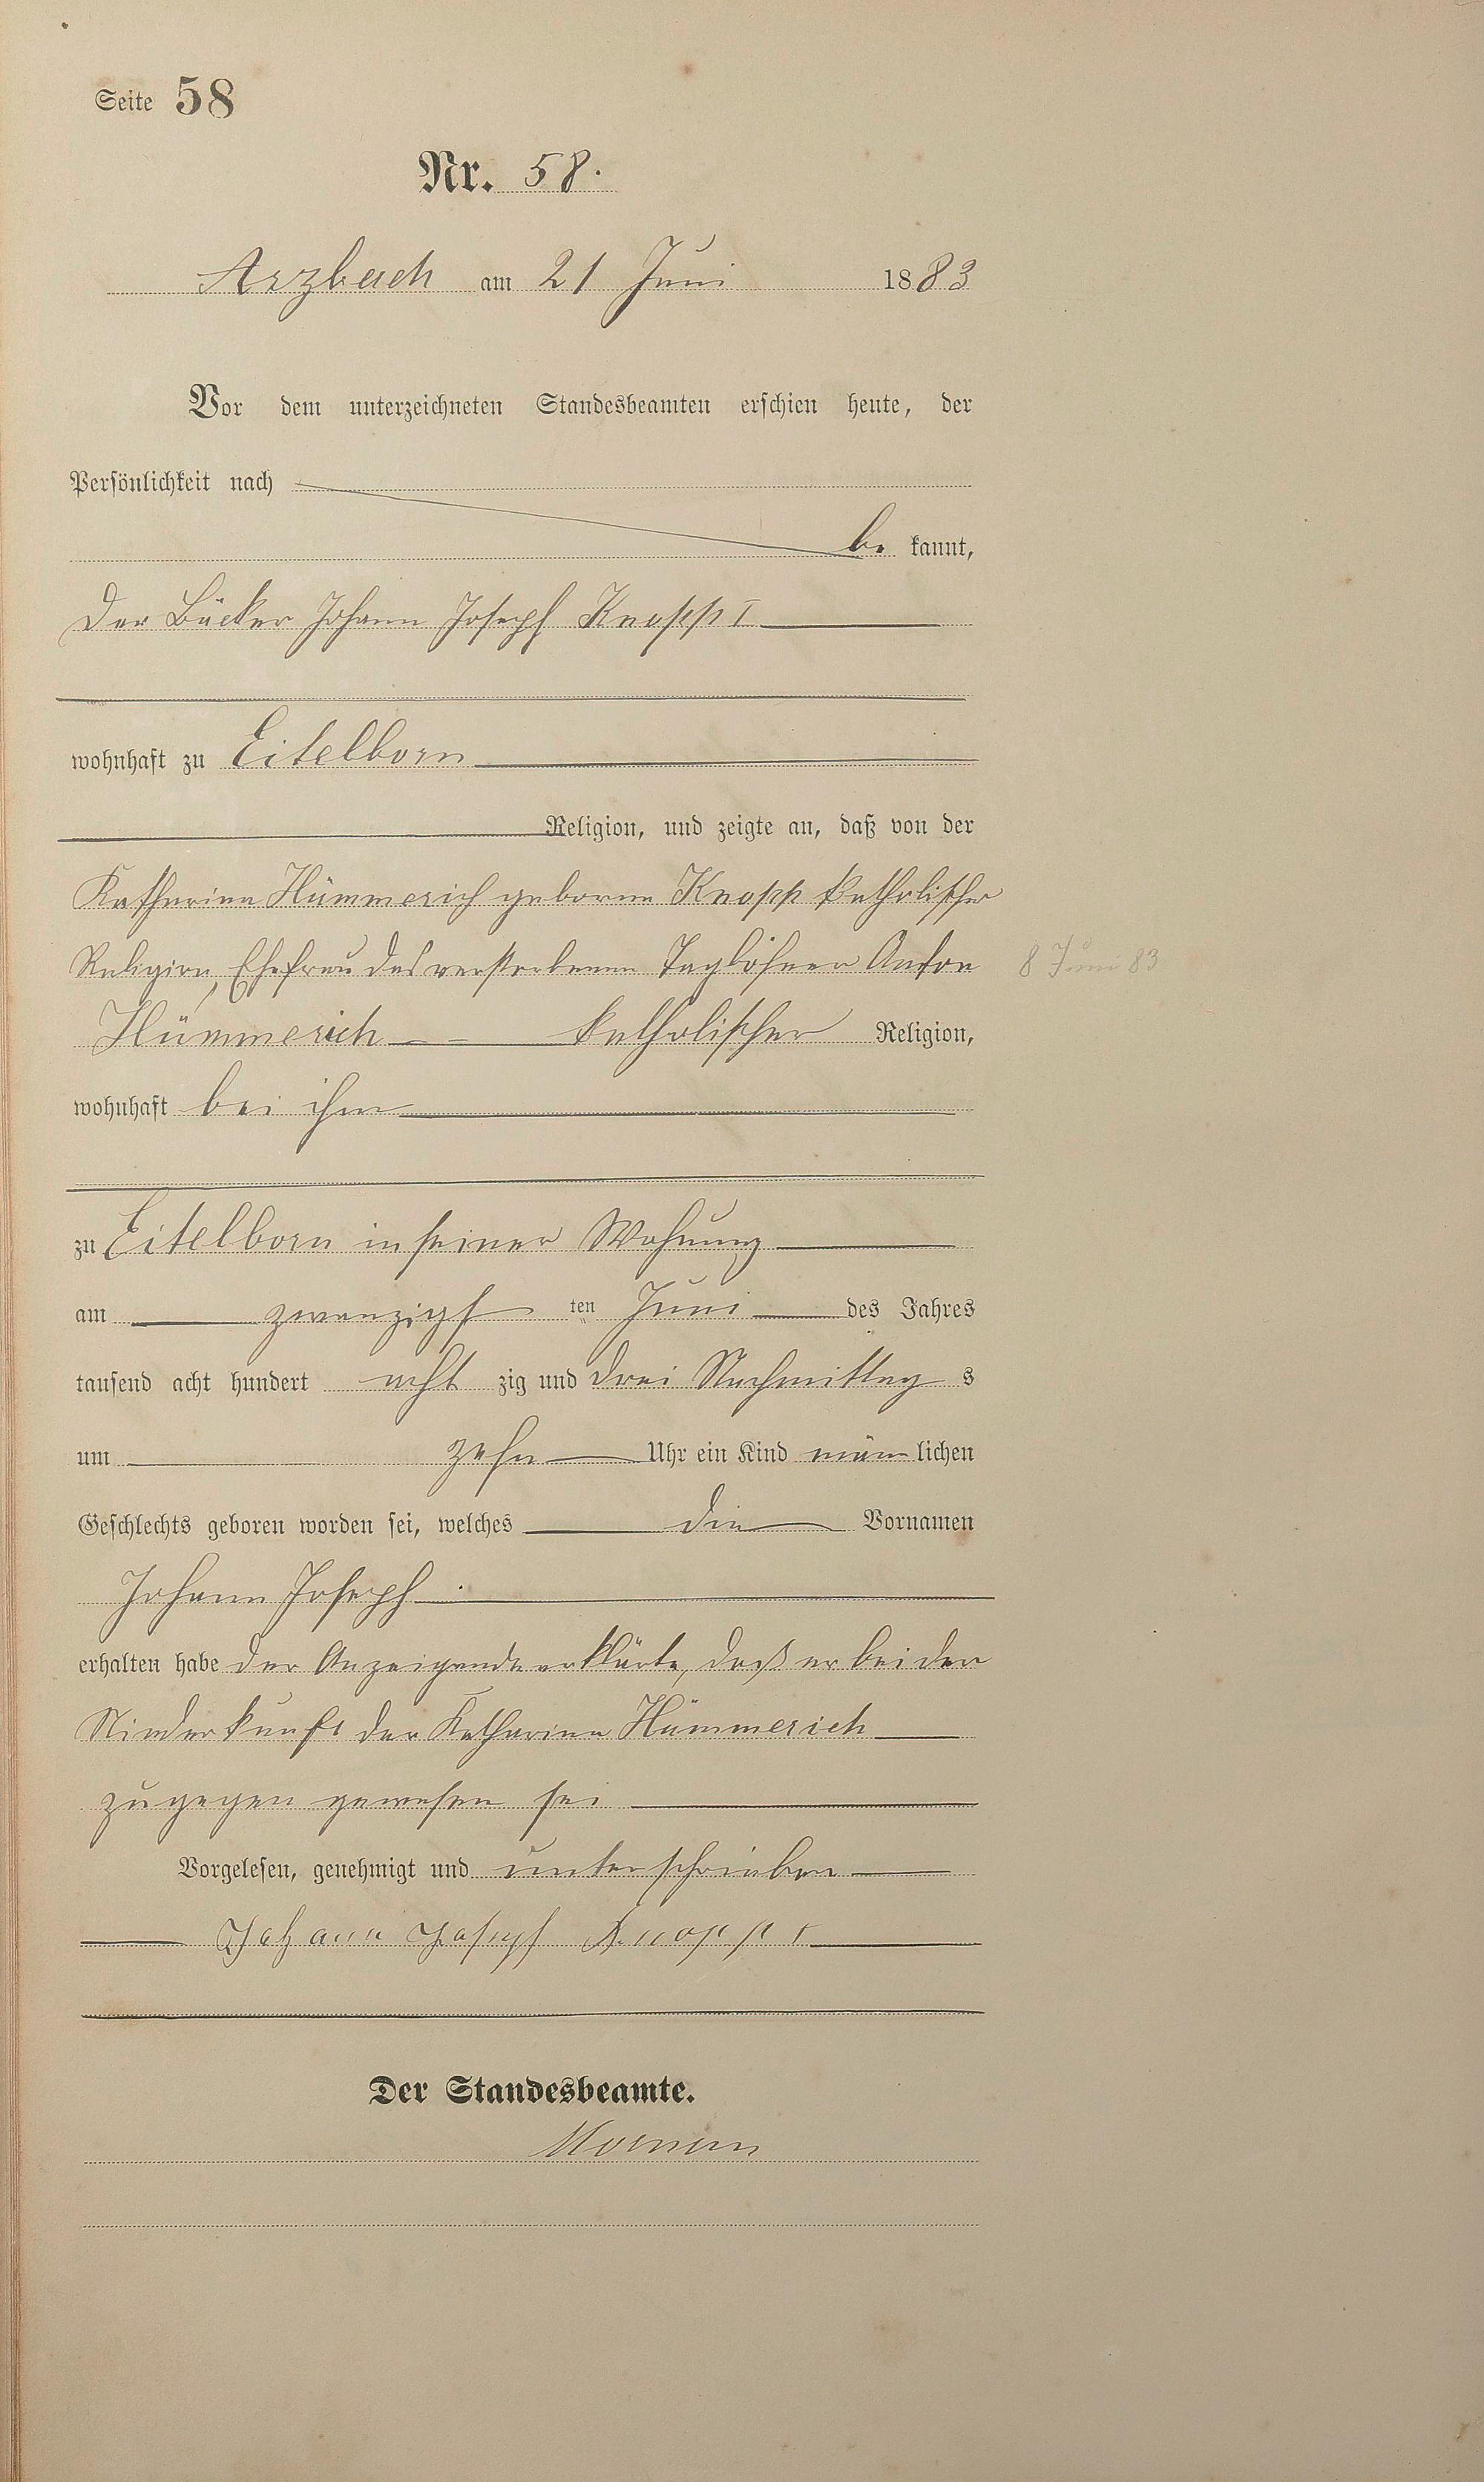 Seite 58
Nr. 58.
Arzbach am 21 Juni 1883
Vor dem unterzeichneten Standesbeamten erschien heute, der
Persönlichkeit nach
be kannt,
der Bäcker Johann Joseph Knopp I
wohnhaft zu Eitelborn
Religion, und zeigte an, daß von der
Katharina Hümmerich geborene Knopp katholischer
Religion, Ehefrau des verstorbenen Taglöhner Anton
8 Juni 83
Hümmerich katholischer Religion,
wohnhaft bei ihm
zu Eitelborn in seiner Wohnung
am zwanzigst ten Juni des Jahres
tausend acht hundert acht zig und drei Nachmittag s
um zehn Uhr ein Kind män lichen
Geschlechts geboren worden sei, welches die Vornamen
Johann Joseph
erhalten habe der Anzeigende erklärte, daß er bei der
Niederkunft der Katharina Hümmerich
zugegen gewesen sei
Vorgelesen, genehmigt und unterschrieben
Johann Joseph Knopp I
Der Standesbeamte.